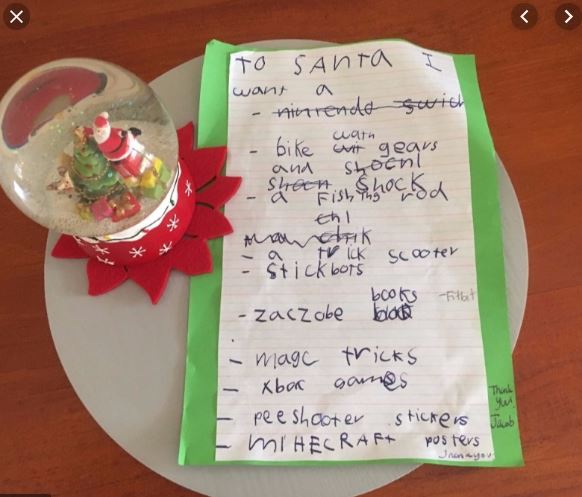 TO SANTA I
want a
- nintendo swich
wath
- bike gears
and shocnl
shocn Shock
- a Fishing rod
- a trick scooter
- stickbots
books - Fitbit
- zaczobe
- magc tricks
- xbox games
- peeshooter stickers
- MINECRAFT posters
Thank
you
Jakob